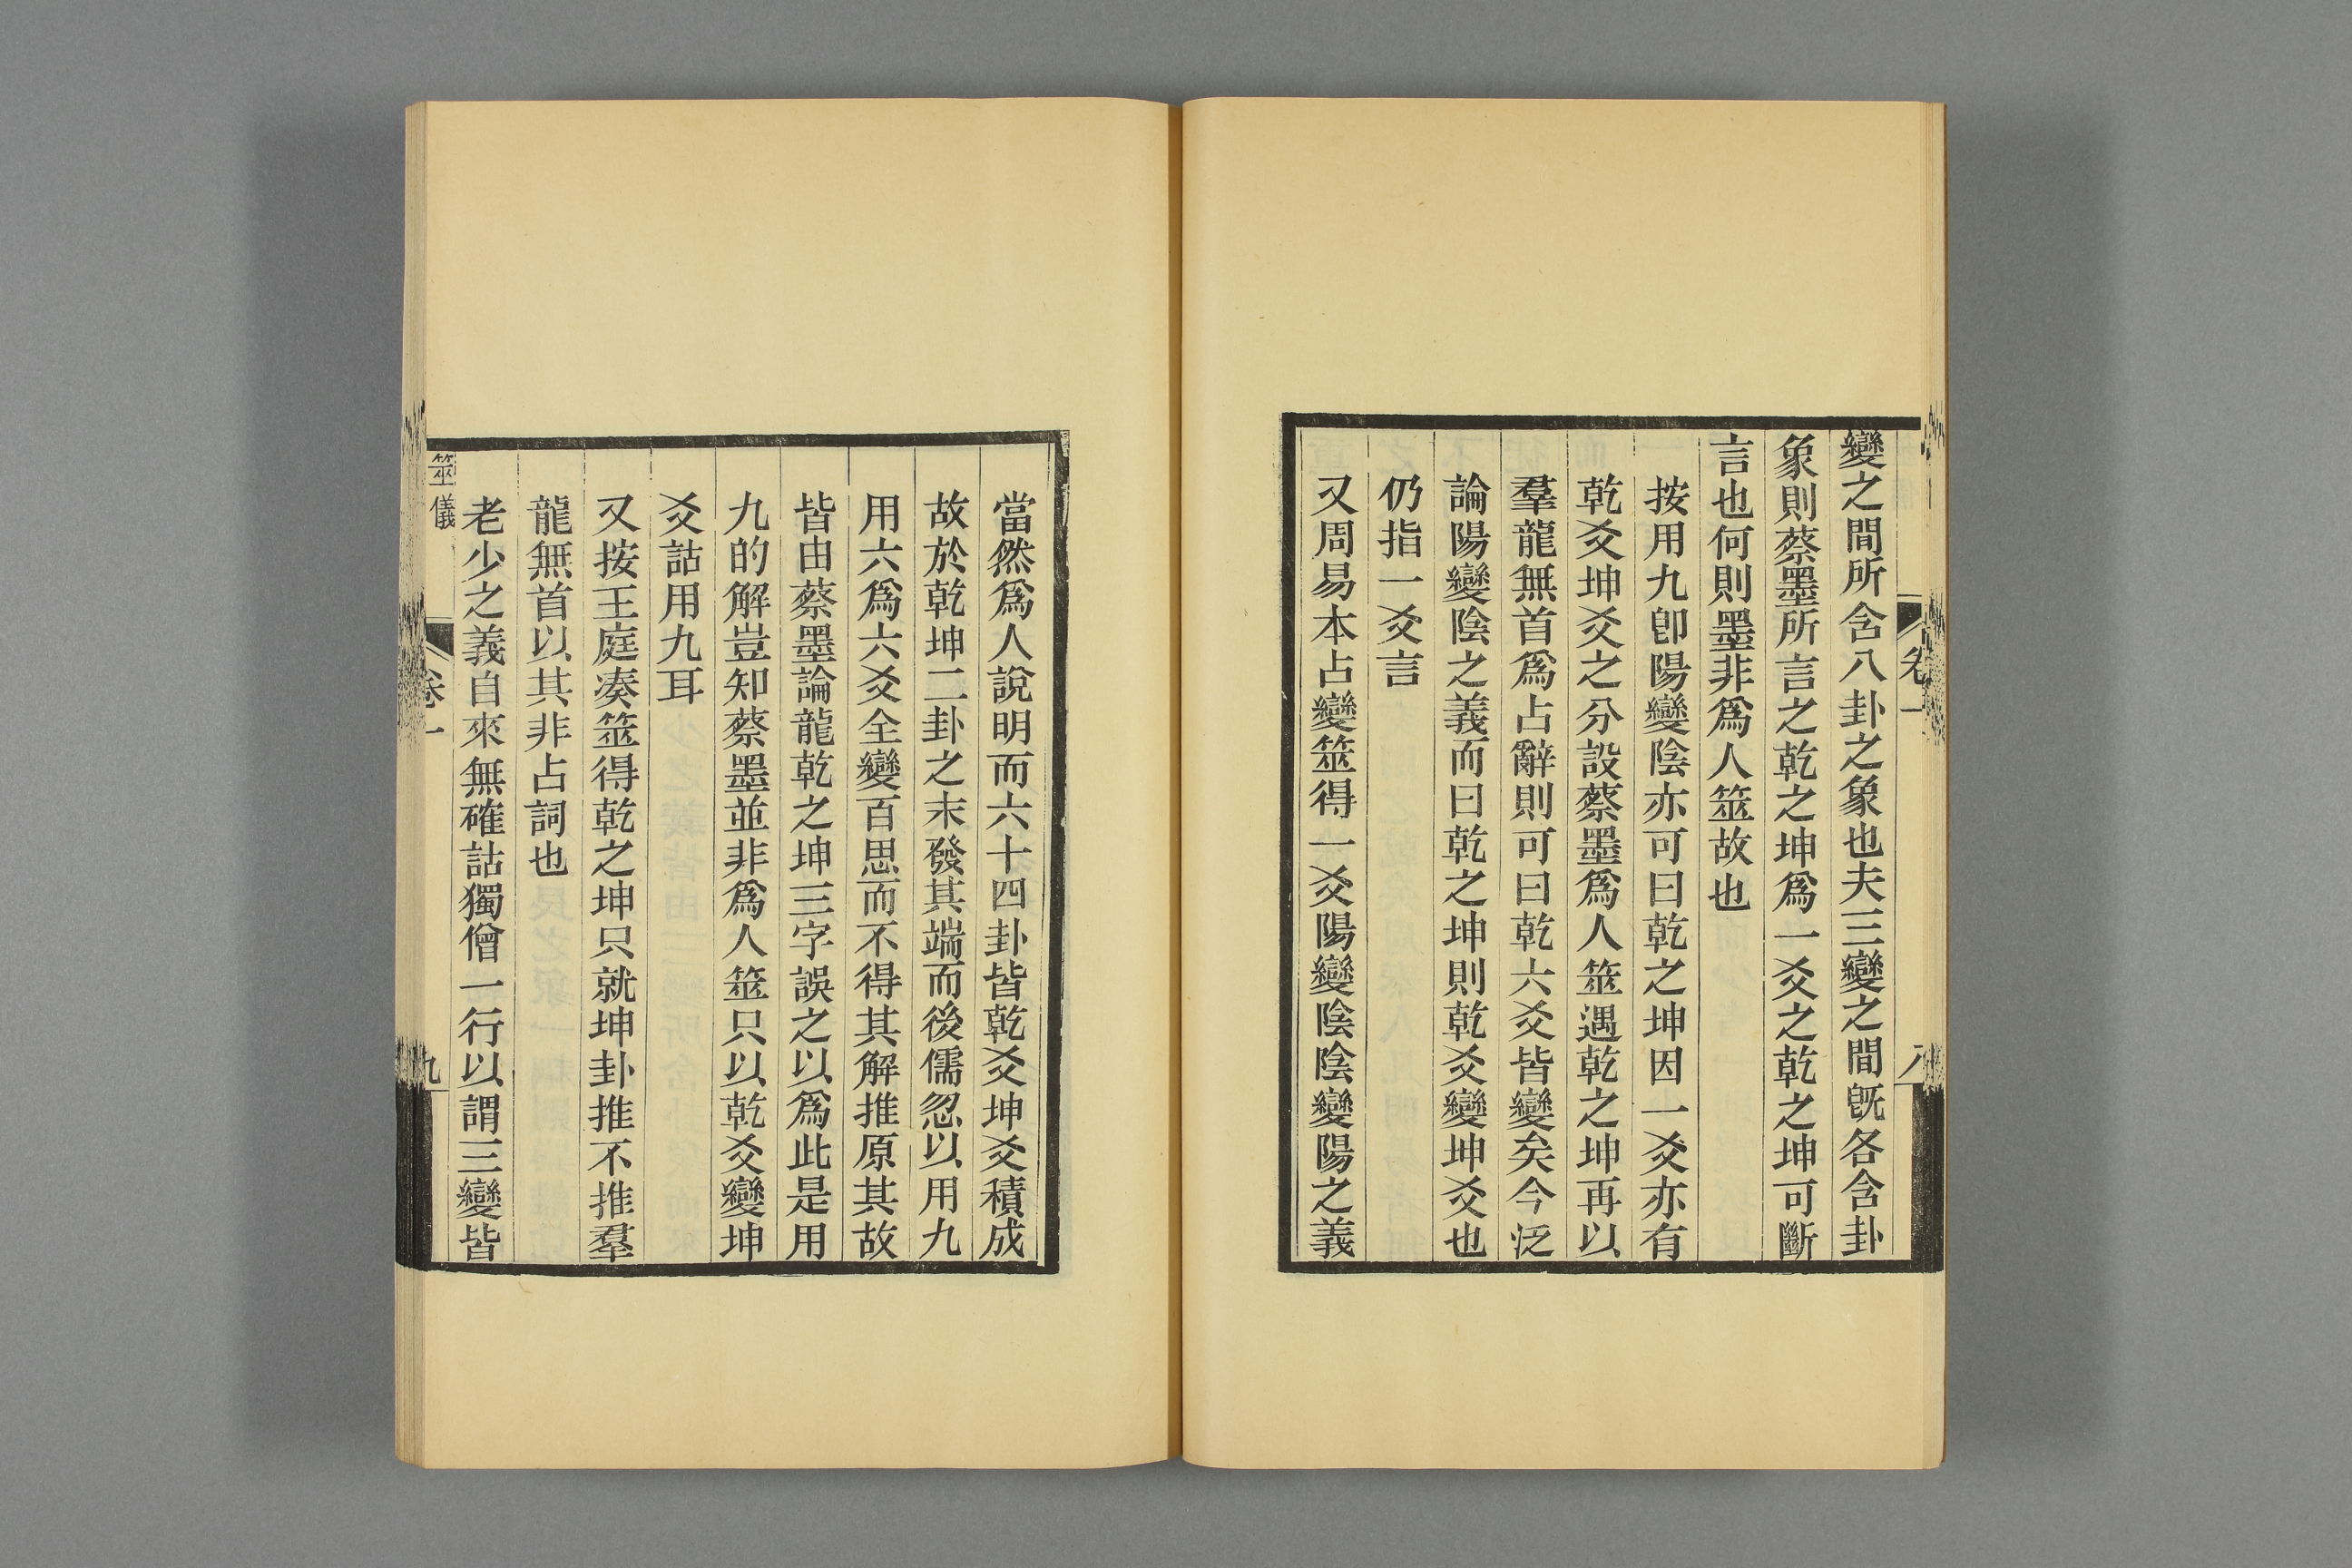 變之間所含八卦之象也夫三變之間旣各含卦
象則蔡墨所言之乾之坤爲一爻之乾之坤可斷
言也何則墨非爲人筮故也
按用九卽陽變陰亦可曰乾之坤因一爻亦有
乾爻坤爻之分設蔡墨爲人筮遇乾之坤再以
羣龍無首爲占辭則可曰乾六爻皆變矣今泛
論陽變陰之義而曰乾之坤則乾爻變坤爻也
仍指一爻言
又周易本占變筮得一爻陽變陰陰變陽之義
卷一
八
當然爲人說明而六十四卦皆乾爻坤爻積成
故於乾坤二卦之末發其端而後儒忽以用九
用六爲六爻全變百思而不得其解推原其故
皆由蔡墨論龍乾之坤三字誤之以爲此是用
九的解豈知蔡墨並非爲人筮只以乾爻變坤
爻詁用九耳
又按王庭凑筮得乾之坤只就坤卦推不推羣
龍無首以其非占詞也
老少之義自來無確詁獨僧一行以謂三變皆
筮儀
卷一
九